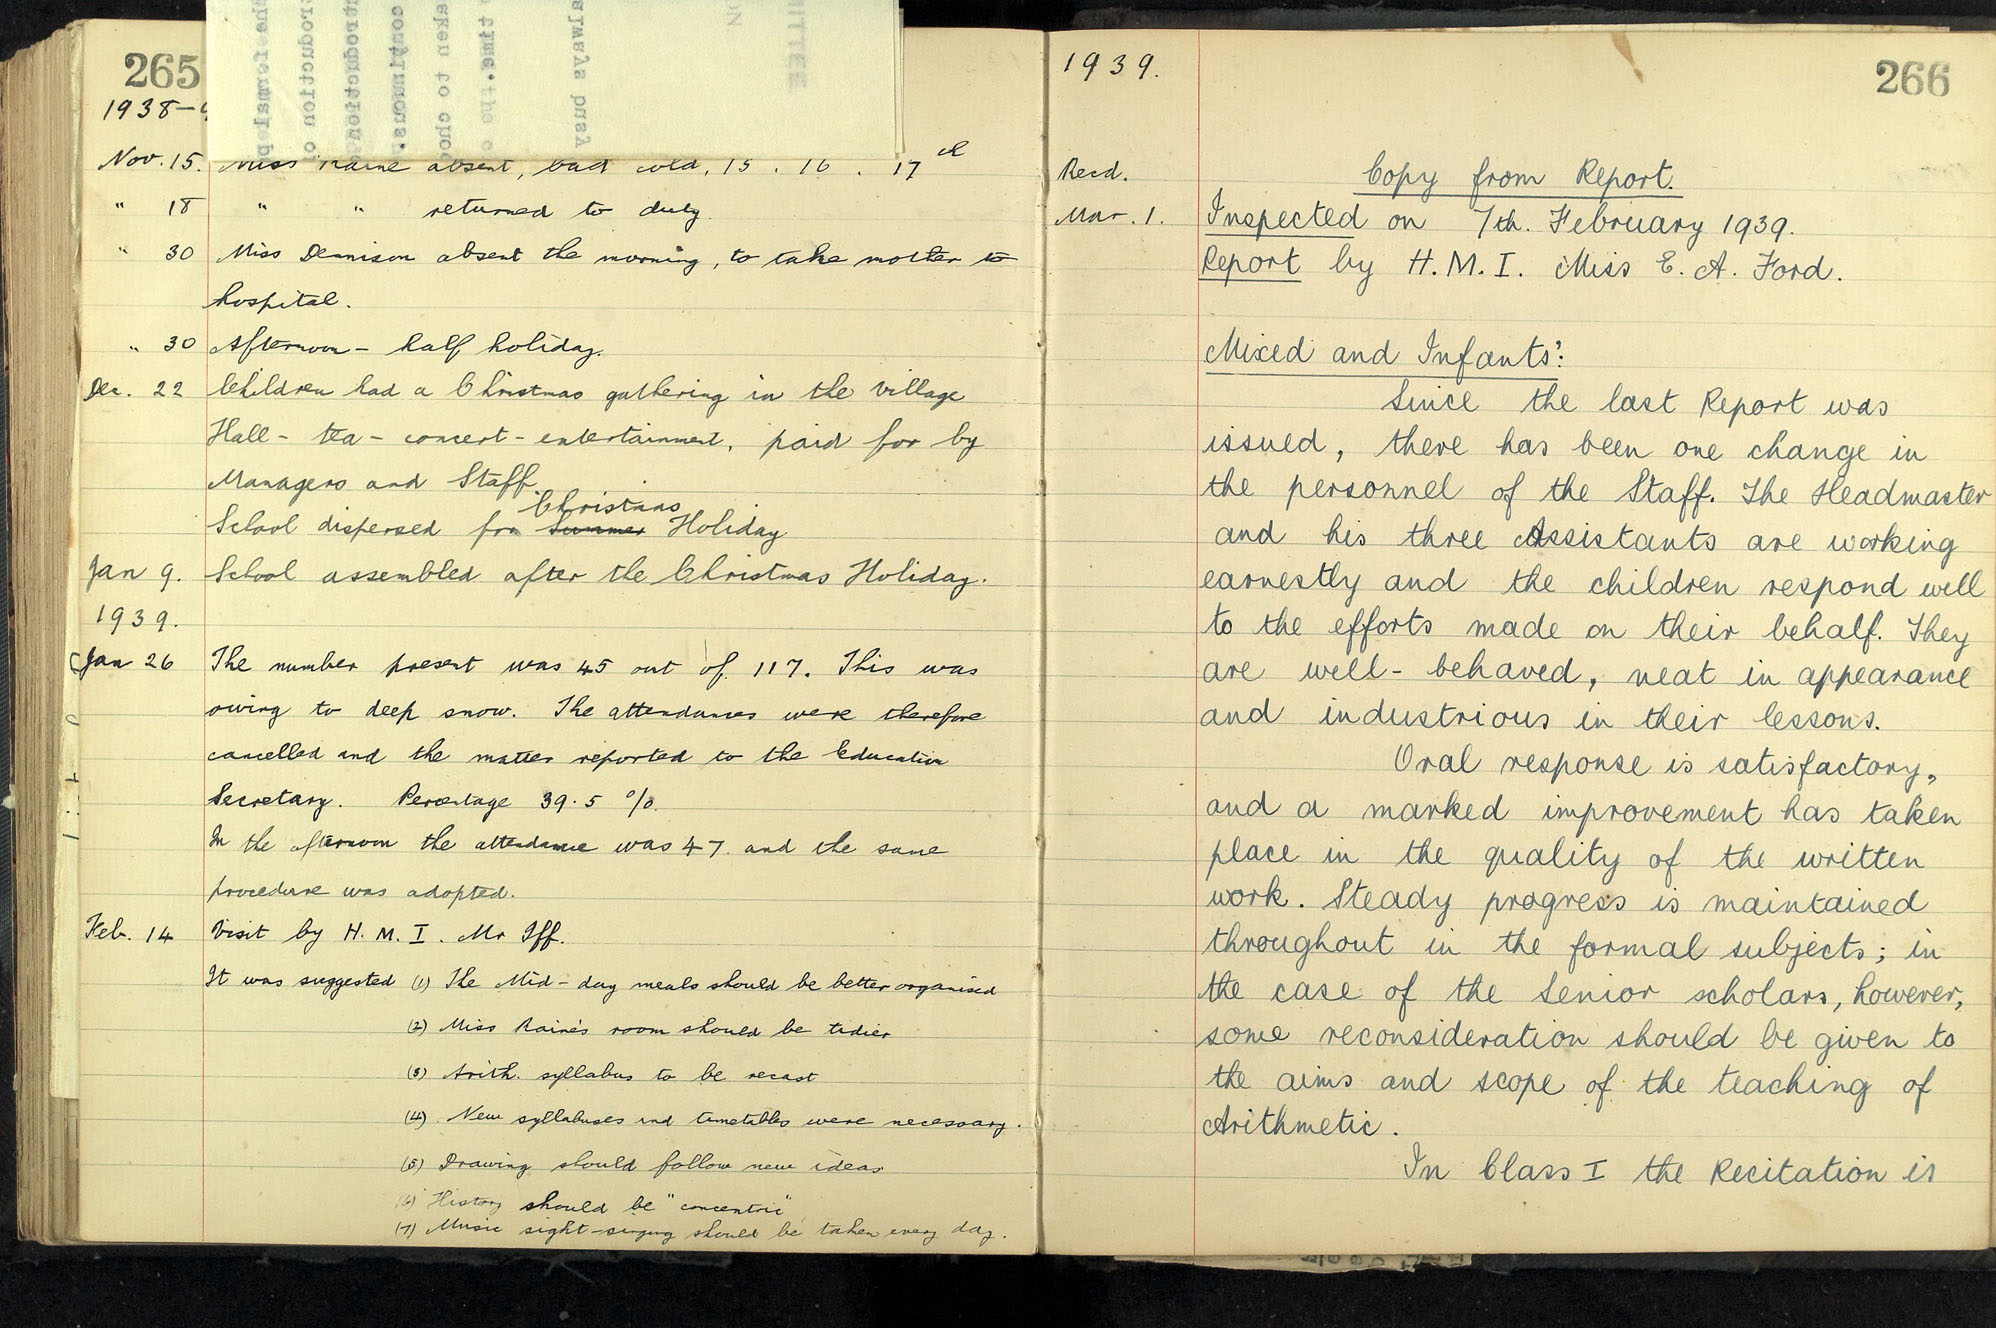 265
1938-9
Nov. 15. Miss Raine absent, bad cold, 15 . 16 . 17th
" 18 " " returned to duty.
" 30 Miss Dennison absent the morning, to take mother to
hospital.
" 30 Afternoon - half holiday.
Dec. 22 Children had a Christmas gathering in the Village
Hall - tea - concert - entertainment, paid for by
Managers and Staff
Christmas
School dispersed for Summer Holiday
Jan 9. School assembled after the Christmas Holiday.
1939.
Jan 26 The number present was 45 out of 117. This was
owing to deep snow. The attendances were therefore
cancelled and the matter reported to the Education
Secretary. Percentage 39.5 %.
In the afternoon the attendance was 47 and the same
procedure was adopted.
Feb. 14 Visit by H.M.I. Mr Iff.
It was suggested (1) The Mid-day meals should be better organised
(2) Miss Raine's room should be tidier
(3) Arith. syllabus to be recast
(4) New syllabuses and timetables were necessary.
(5) Drawing should follow new ideas
(6) History should be "concentric"
(7) Music sight-singing should be taken every day.
1939.
266
Recd. Copy from Report.
Mar. 1. Inspected on 7th. February 1939.
Report by H.M.I. Miss E. A. Ford.
Mixed and Infants':
Since the last Report was
issued, there has been one change in
the personnel of the Staff. The Headmaster
and his three Assistants are working
earnestly and the children respond well
to the efforts made on their behalf. They
are well-behaved, neat in appearance
and industrious in their lessons.
Oral response is satisfactory,
and a marked improvement has taken
place in the quality of the written
work. Steady progress is maintained
throughout in the formal subjects; in
the case of the Senior scholars, however,
some reconsideration should be given to
the aims and scope of the teaching of
Arithmetic.
In Class I the Recitation is